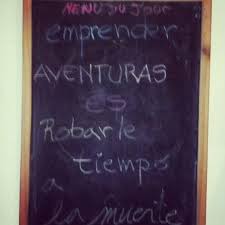 MENU DU JOUR
emprender
AVENTURAS
ES
Robarle
tiempo
a
la muerte